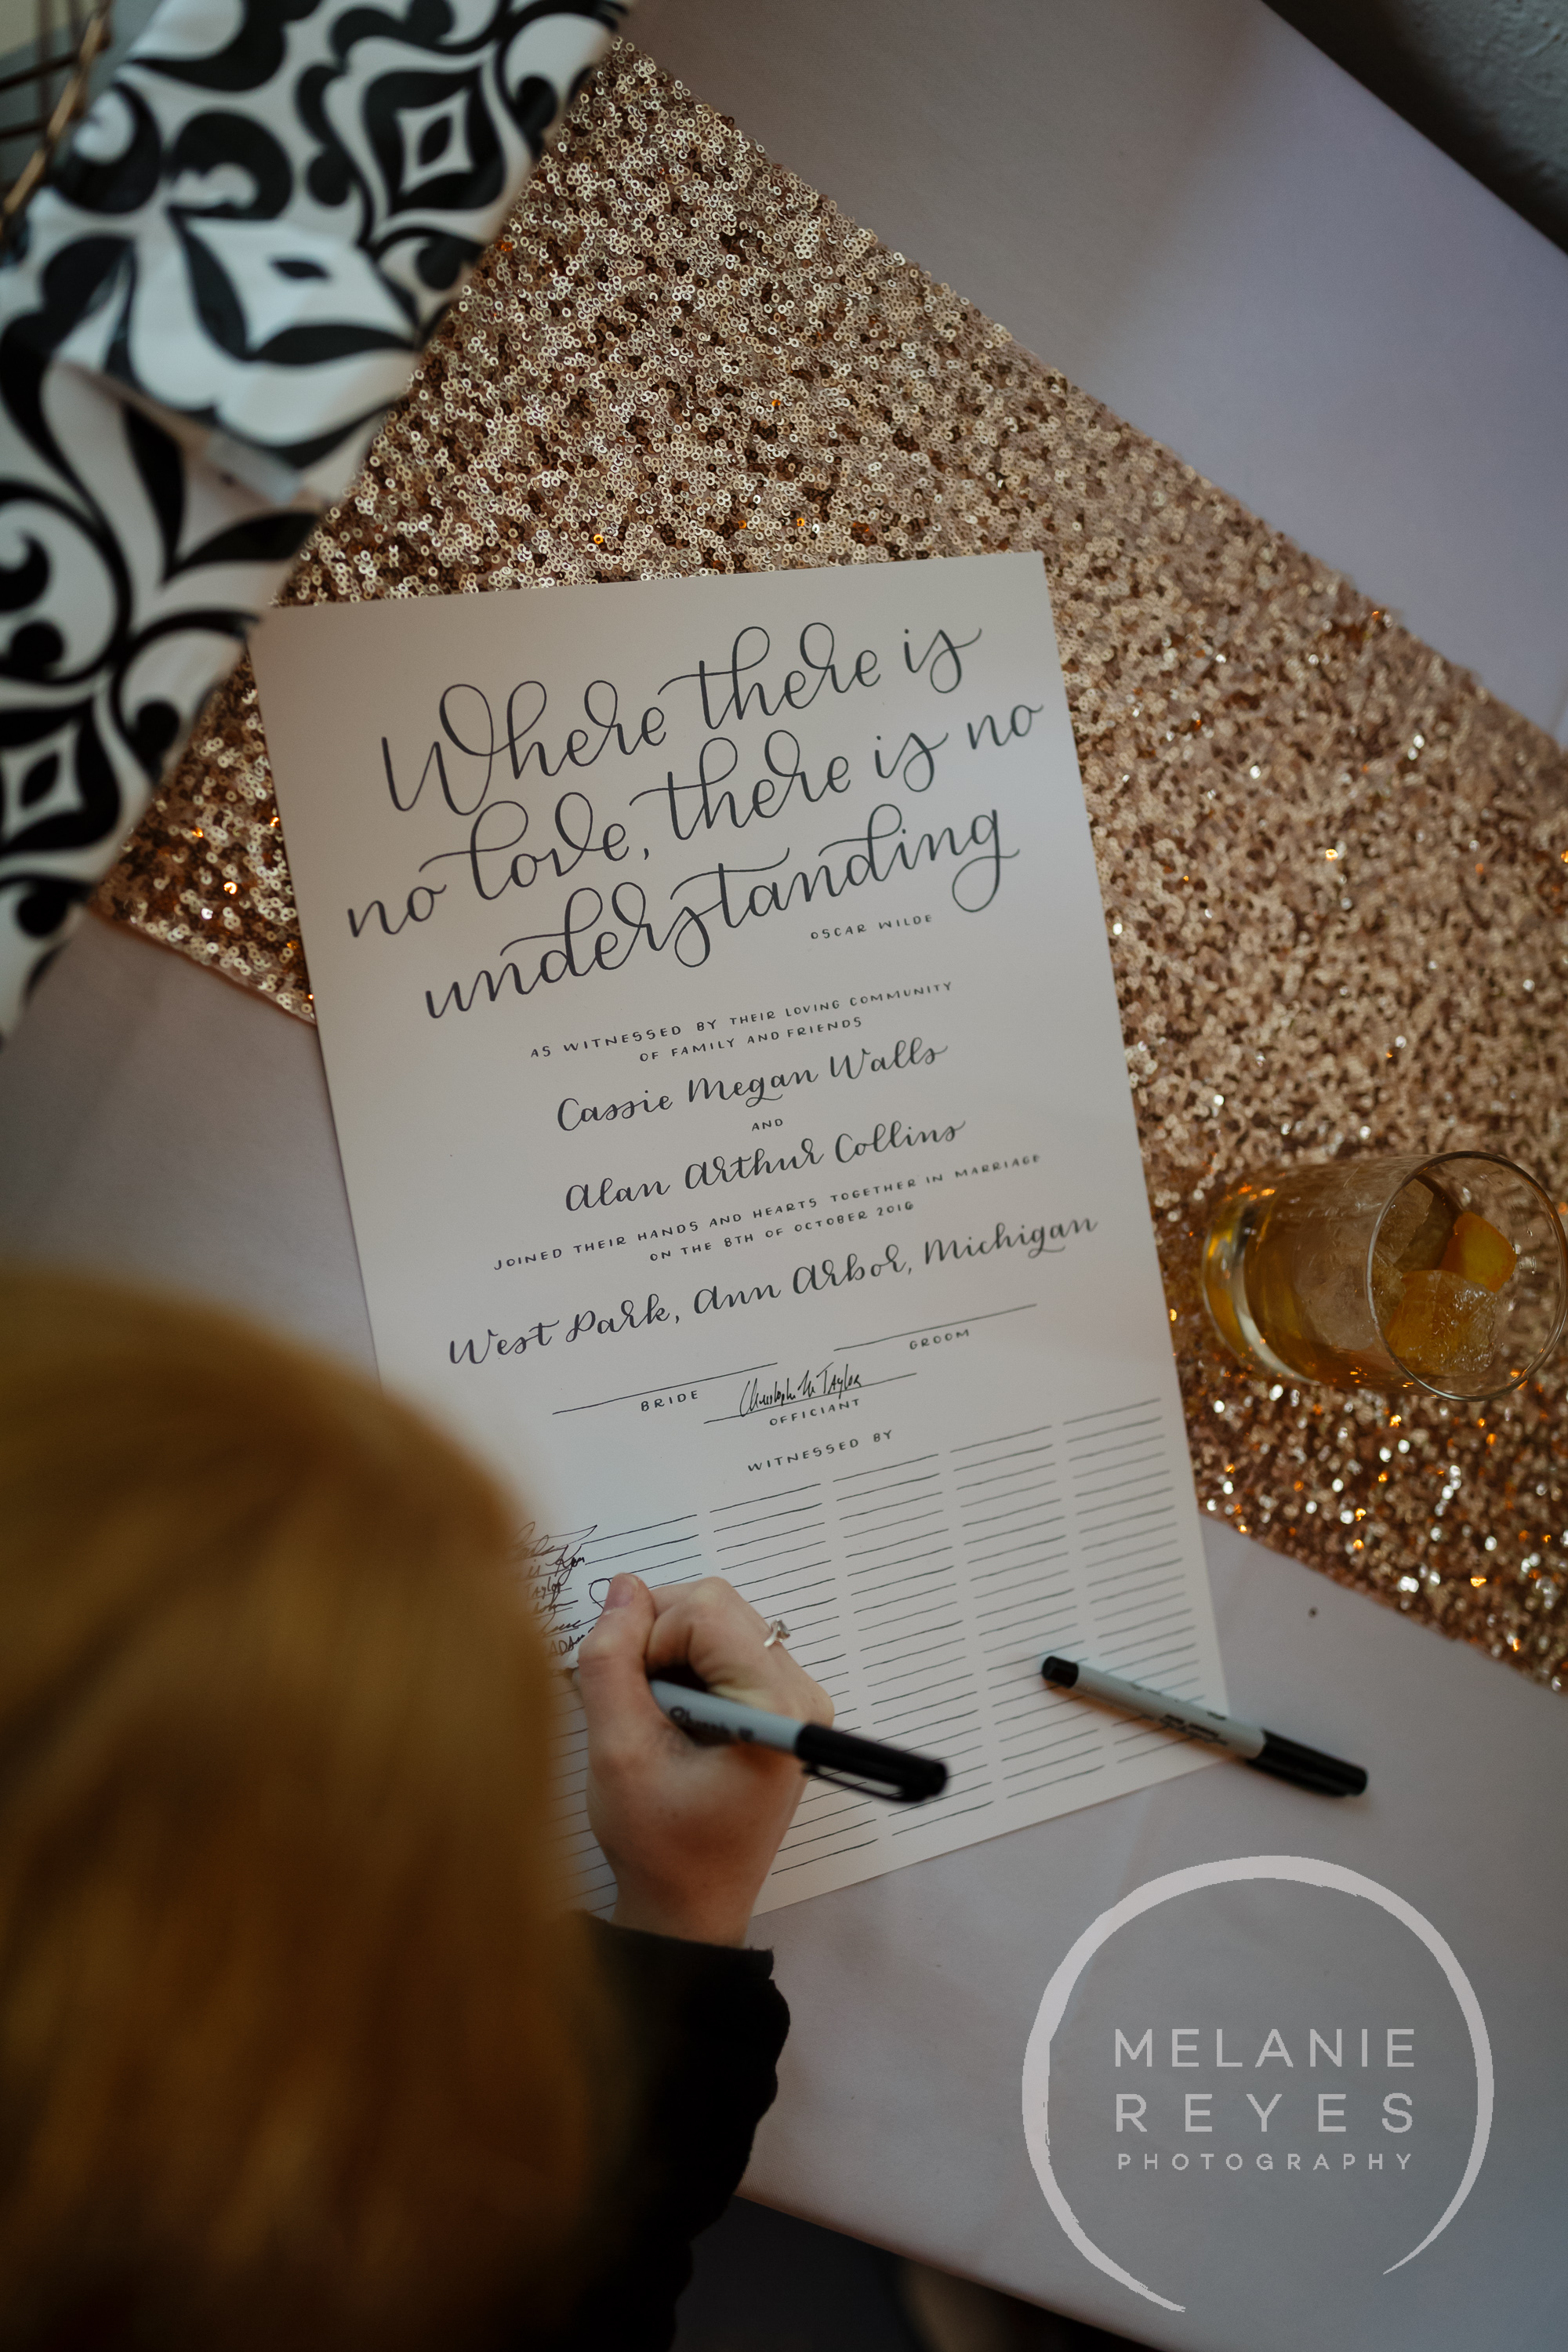 Where there is
no love, there is no
understanding
OSCAR WILDE
AS WITNESSED BY THEIR LOVING COMMUNITY
OF FAMILY AND FRIENDS
Cassie Megan Walls
AND
Alan Arthur Collins
JOINED THEIR HANDS AND HEARTS TOGETHER IN MARRIAGE
ON THE 8TH OF OCTOBER 2016
West Park, Ann Arbor, Michigan
GROOM
BRIDE
Taylor
OFFICIANT
WITNESSED BY
MELANIE
REYES
PHOTOGRAPHY